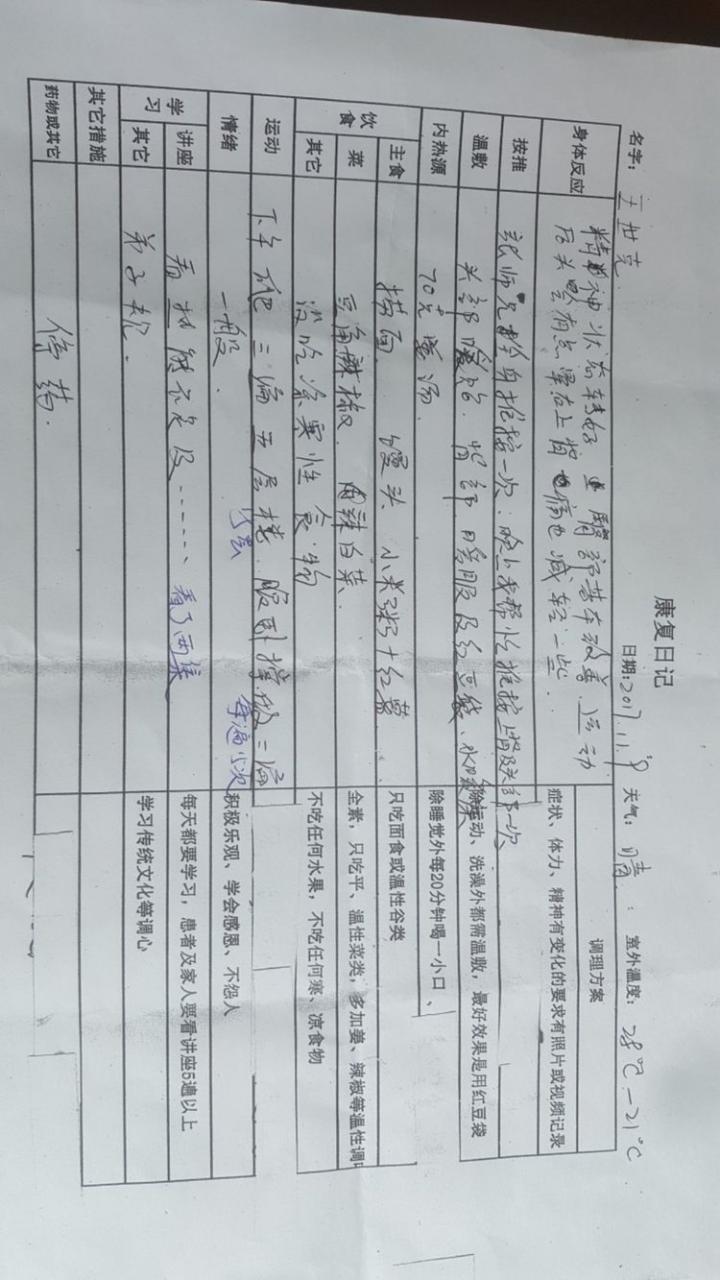 康复日记
名字： 王世克 日期：2017.11.9 天气： 晴 ： 室外温度： 28℃—21℃
调理方案
身体反应 精神状态转好 肩部基本改善 运动
后头晕有点 右上背 痛也减轻一些． 症状、体力、精神有变化的要求有照片或视频记录
按推 张师兄 推按一次；晚上我帮忙推按上背及头部一次
温敷 头部暖贴．背部 及红豆袋、 除运动、洗澡外都需温敷，最好效果是用红豆袋
内热源 70克姜汤 除睡觉外每20分钟喝一小口、
饮食 主食 捞面 馒头 小米粥+红薯 只吃面食或温性谷类
菜 豆角辣椒． 白菜、 全素，只吃平、温性菜类，多加姜、辣椒等温性调
其它 没吃凉寒性食物 不吃任何水果，不吃任何寒、凉食物
运动 下午爬二遍五层楼 二遍
每遍 次
情绪 一般． 积极乐观、学会感恩、不怨人
学习 讲座 看 ……、看了两集 每天都要学习，患者及家人要看讲座5遍以上
其它 弟子规． 学习传统文化等调心
其它措施
药物或其它 停药．